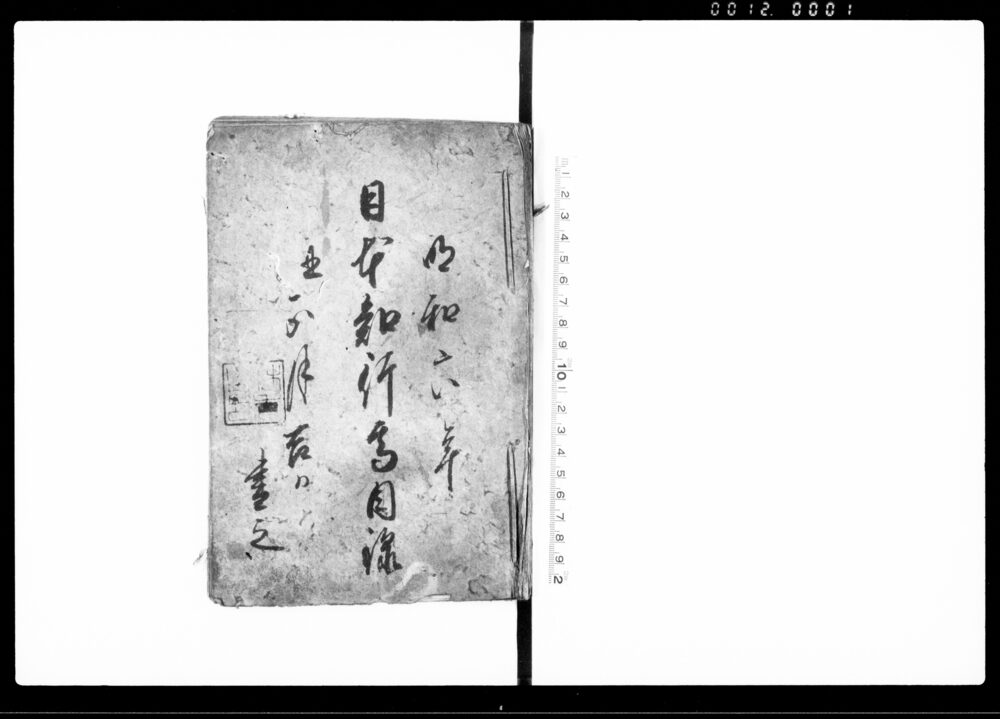 0012. 0001
明和六年
日本知行高目録
丑正月吉日
書之
1 2 3 4 5 6 7 8 9 10 1 2 3 4 5 6 7 8 9 2